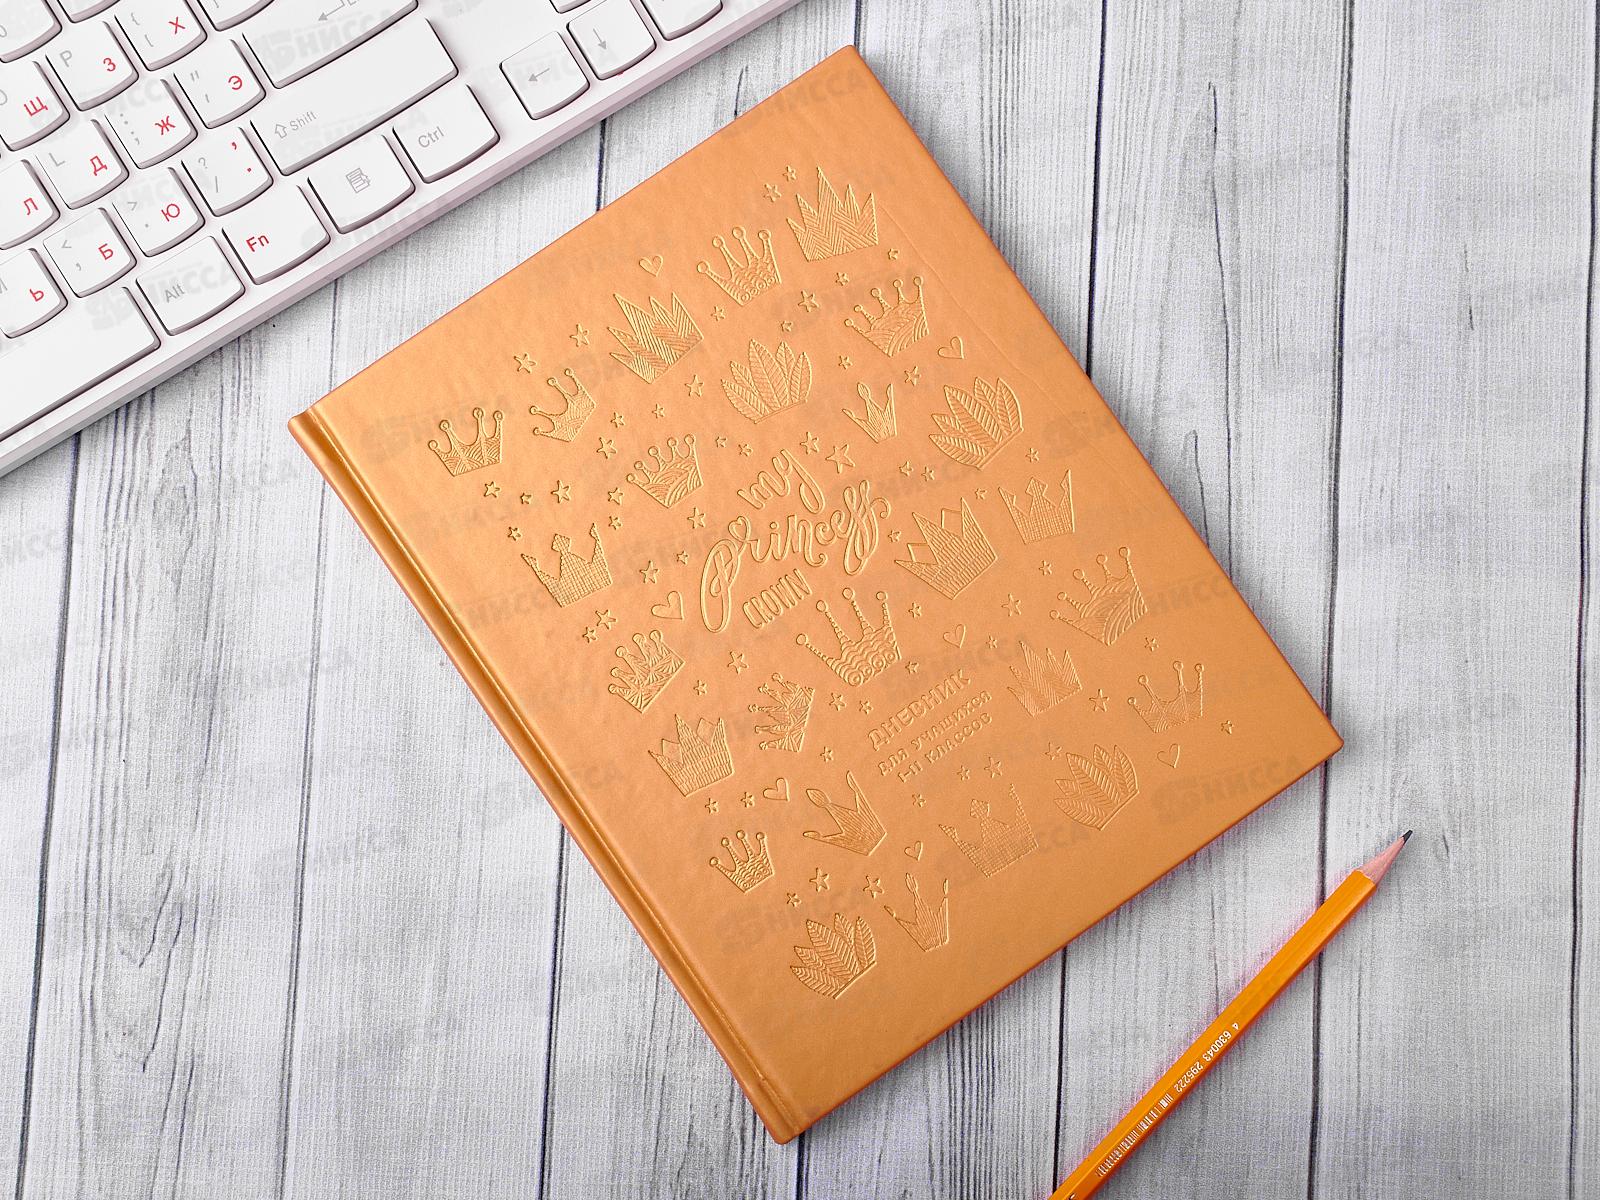 Х
{
[
Р
З
"
'
Э
Щ
:
;
Ж
Shift
Ctrl
L
Д
?
/
,
.
Л
>
.
Ю
Fn
<
,
Б
Alt
Ь
my
Princess
CROWN
ДНЕВНИК
ДЛЯ УЧАЩИХСЯ
1-11 КЛАССОВ
4 630043 295222
НИССА